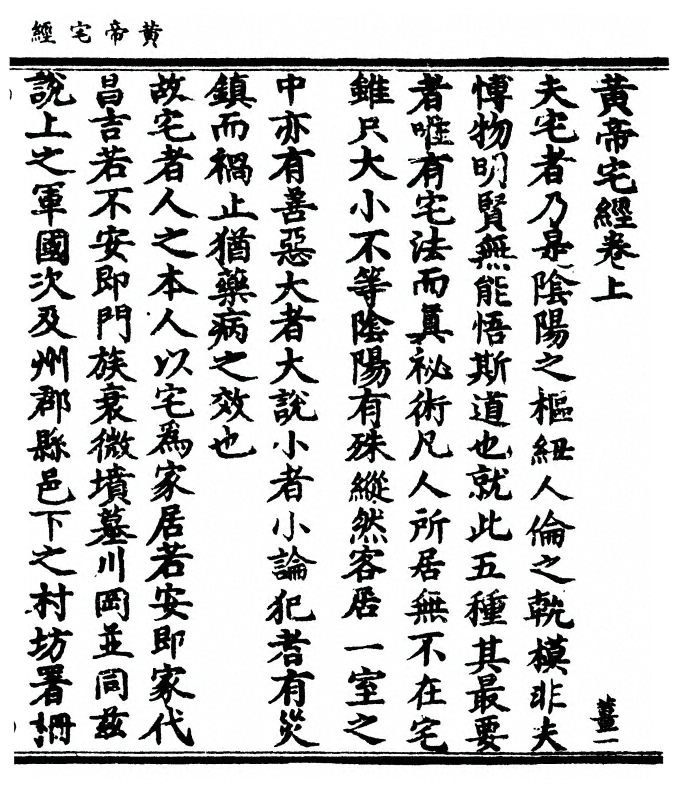 黄帝宅經
黄帝宅經卷上
薑一
夫宅者乃是陰陽之樞紐人倫之軌模非夫
博物明賢無能悟斯道也就此五種其最要
者唯有宅法而真祕術凡人所居無不在宅
雖只大小不等陰陽有殊縱然客居一室之
中亦有善惡大者大說小者小論犯者有災
鎮而禍止猶藥病之效也
故宅者人之本人以宅爲家居若安即家代
昌吉若不安即門族衰微墳墓川岡並同兹
說上之軍國次及州郡縣邑下之村坊署柵